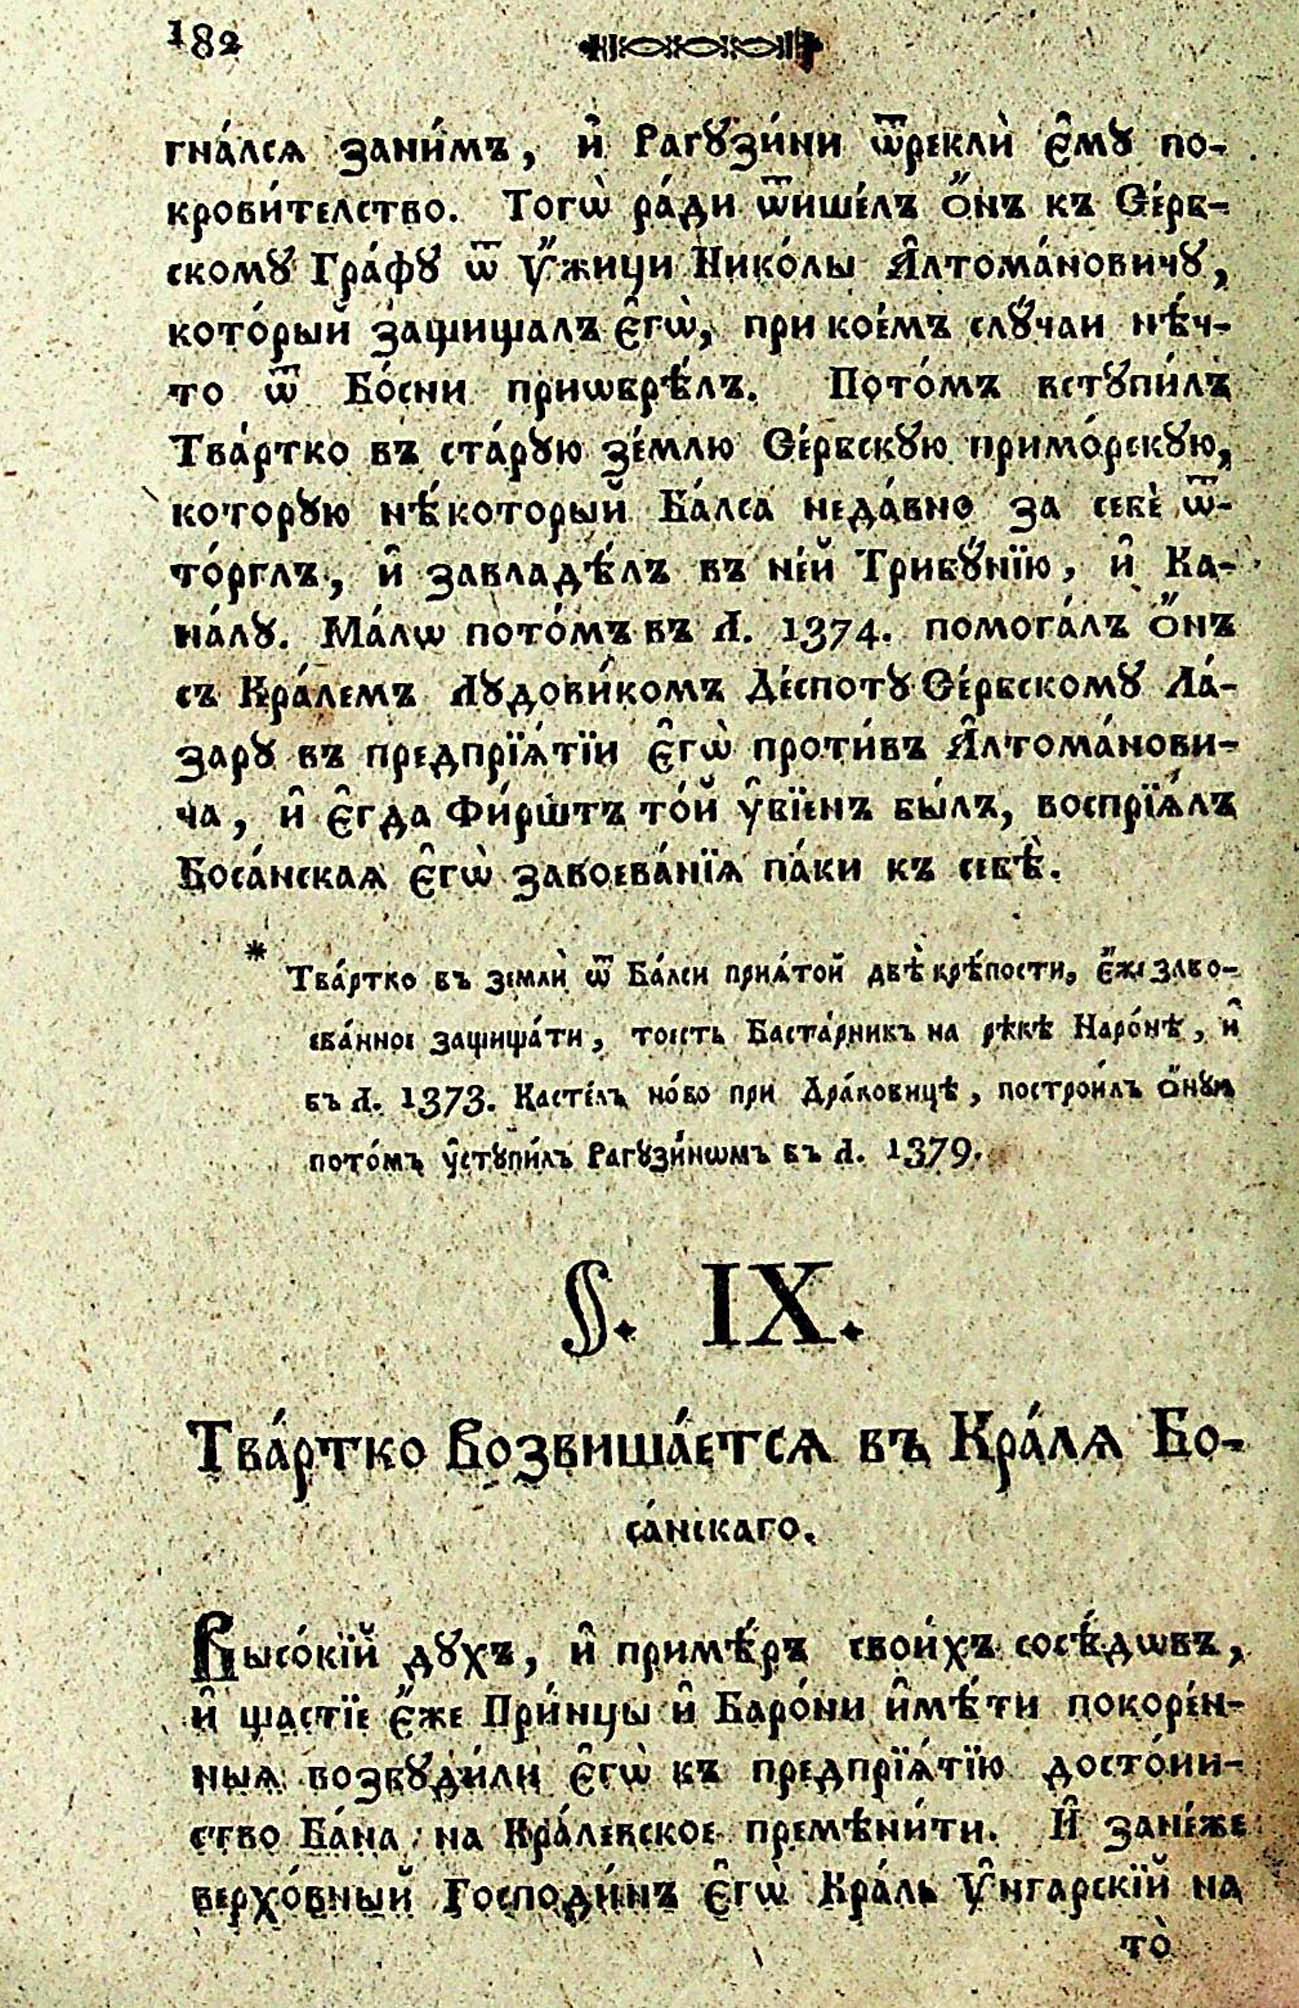 182
гна́лсѧ зани́мъ, и҆̀ Рагꙋзи́ни ѿреклѝ є҆мꙋ по-
крови́телство. Тогѡ̀ ра́ди ѿише́лъ ѻ҆́нъ къ Се́рб-
скомꙋ Гра́фꙋ ѿ Ꙋ҆́жици Нико́лы А҆лтома́новичꙋ,
кото́рый защищалъ є҆гѡ̀, при кое́мъ слꙋ́чаи нѣ́ч-
то ѿ Бо́сни приѡбрѣ́лъ. Пото́мъ вступи́лъ
Тва́ртко въ ста́рꙋю зе́млю Се́рбскꙋю примо́рскꙋю,
которꙋю нѣ́который Ба́лса неда́вно за себѐ ѿ-
то́рглъ, и҆ завладѣ́лъ въ не́й Трибꙋ́нїю, и҆ Ка-
на́лꙋ. Ма́лѡ пото́мъ въ Л. 1374. помога́лъ ѻ҆́нъ
съ Кра́лемъ Лꙋдови́комъ Де́спотꙋ Се́рбскомꙋ Ла́-
зарꙋ въ предпрїѧ́тїи є҆гѡ̀ проти́въ А҆лтома́нови-
ча, и҆ є҆гда Фи́рштъ то́й ᲂу҆бїенъ бы́лъ, воспрїѧ́лъ
Боса́нскаѧ є҆гѡ̀ завоева́нїѧ па́ки къ себѣ̀.
* Тва́ртко въ землѝ ѿ Ба́лси приѧ́той двѣ̀ крѣ́пости, є҆́же заво-
ева́нное защища́ти, тоесть Баста́рникъ на рѣкѣ Наро́нѣ, и҆
въ Л. 1373. Касте́лъ но́во при Дра́ковицѣ, построи́лъ ѻ҆́нꙋю
пото́мъ ᲂу҆ступи́лъ Рагꙋзи́нѡмъ въ Л. 1379.
§. IX.
Тва́ртко Возвиша́етсѧ въ Кра́лѧ Бо-
са́нскаго.
Высо́кїй дꙋхъ, и҆ примѣ́ръ свои́хъ сосѣ́дѡвъ,
и҆ щастїе є҆́же При́нцы и҆ Баро́ни и҆мѣ́ти покоре́н-
ныѧ возбꙋди́ли є҆гѡ̀ къ предпрїѧ́тїю досто́ин-
ство Ба́на на Кра́левское премѣни́ти. И҆ зане́же
верхо́вный Господи́нъ є҆гѡ̀ Кра́ль Ꙋ҆нгарскїй на
то̀